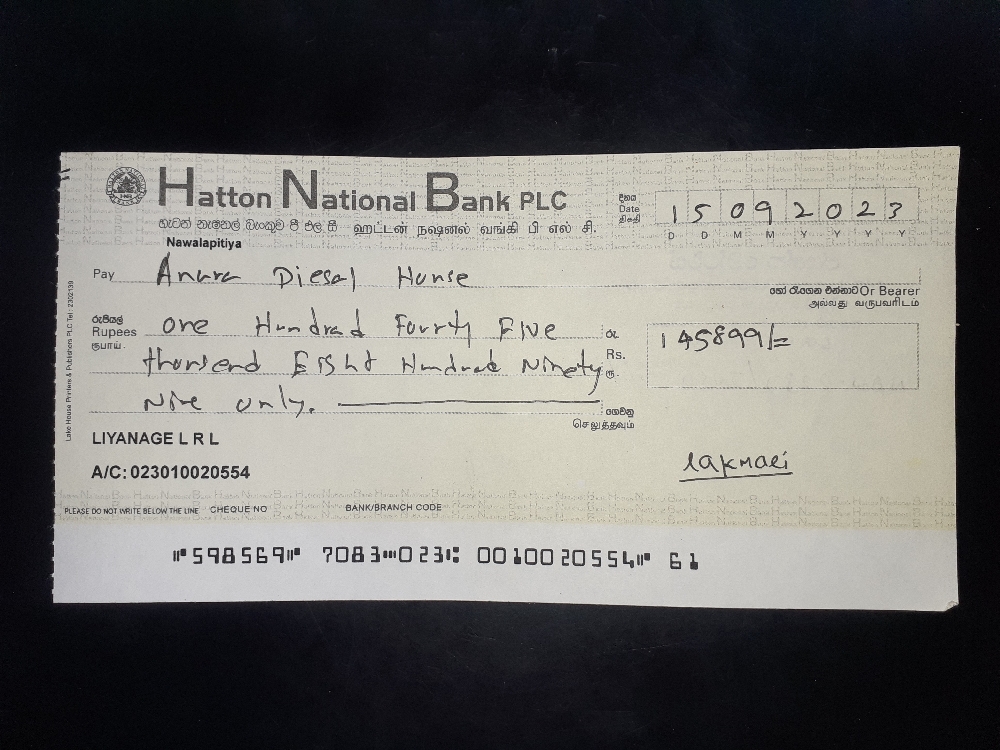 Hatton National Bank PLC
හැටන් නැෂනල් බැංකුව පී එල් සී ஹட்டன் நஷனல் வங்கி பி எல் சி.
Nawalapitiya
දිනය
Date
திகதி
15 09 2023
D D M M Y Y Y Y
Pay Anura Diesal House
හෝ රැගෙන එන්නාට Or Bearer
அல்லது வருபவரிடம்
රුපියල්
Rupees
ரூபாய்.
one Hundrad Fourty Five
thousend Eight Hundred Ninety
Nine only.
රු.
Rs.
ரூ.
145899/=
ගෙවනු
செலுத்தவும்
LIYANAGE L R L
A/C: 023010020554
lakmali
Lake House Printers & Publishers PLC Tel : 2302139
PLEASE DO NOT WRITE BELOW THE LINE CHEQUE NO BANK/BRANCH CODE
⑈598569⑈ 7083⑉023⑆ 0010020554⑈ 61